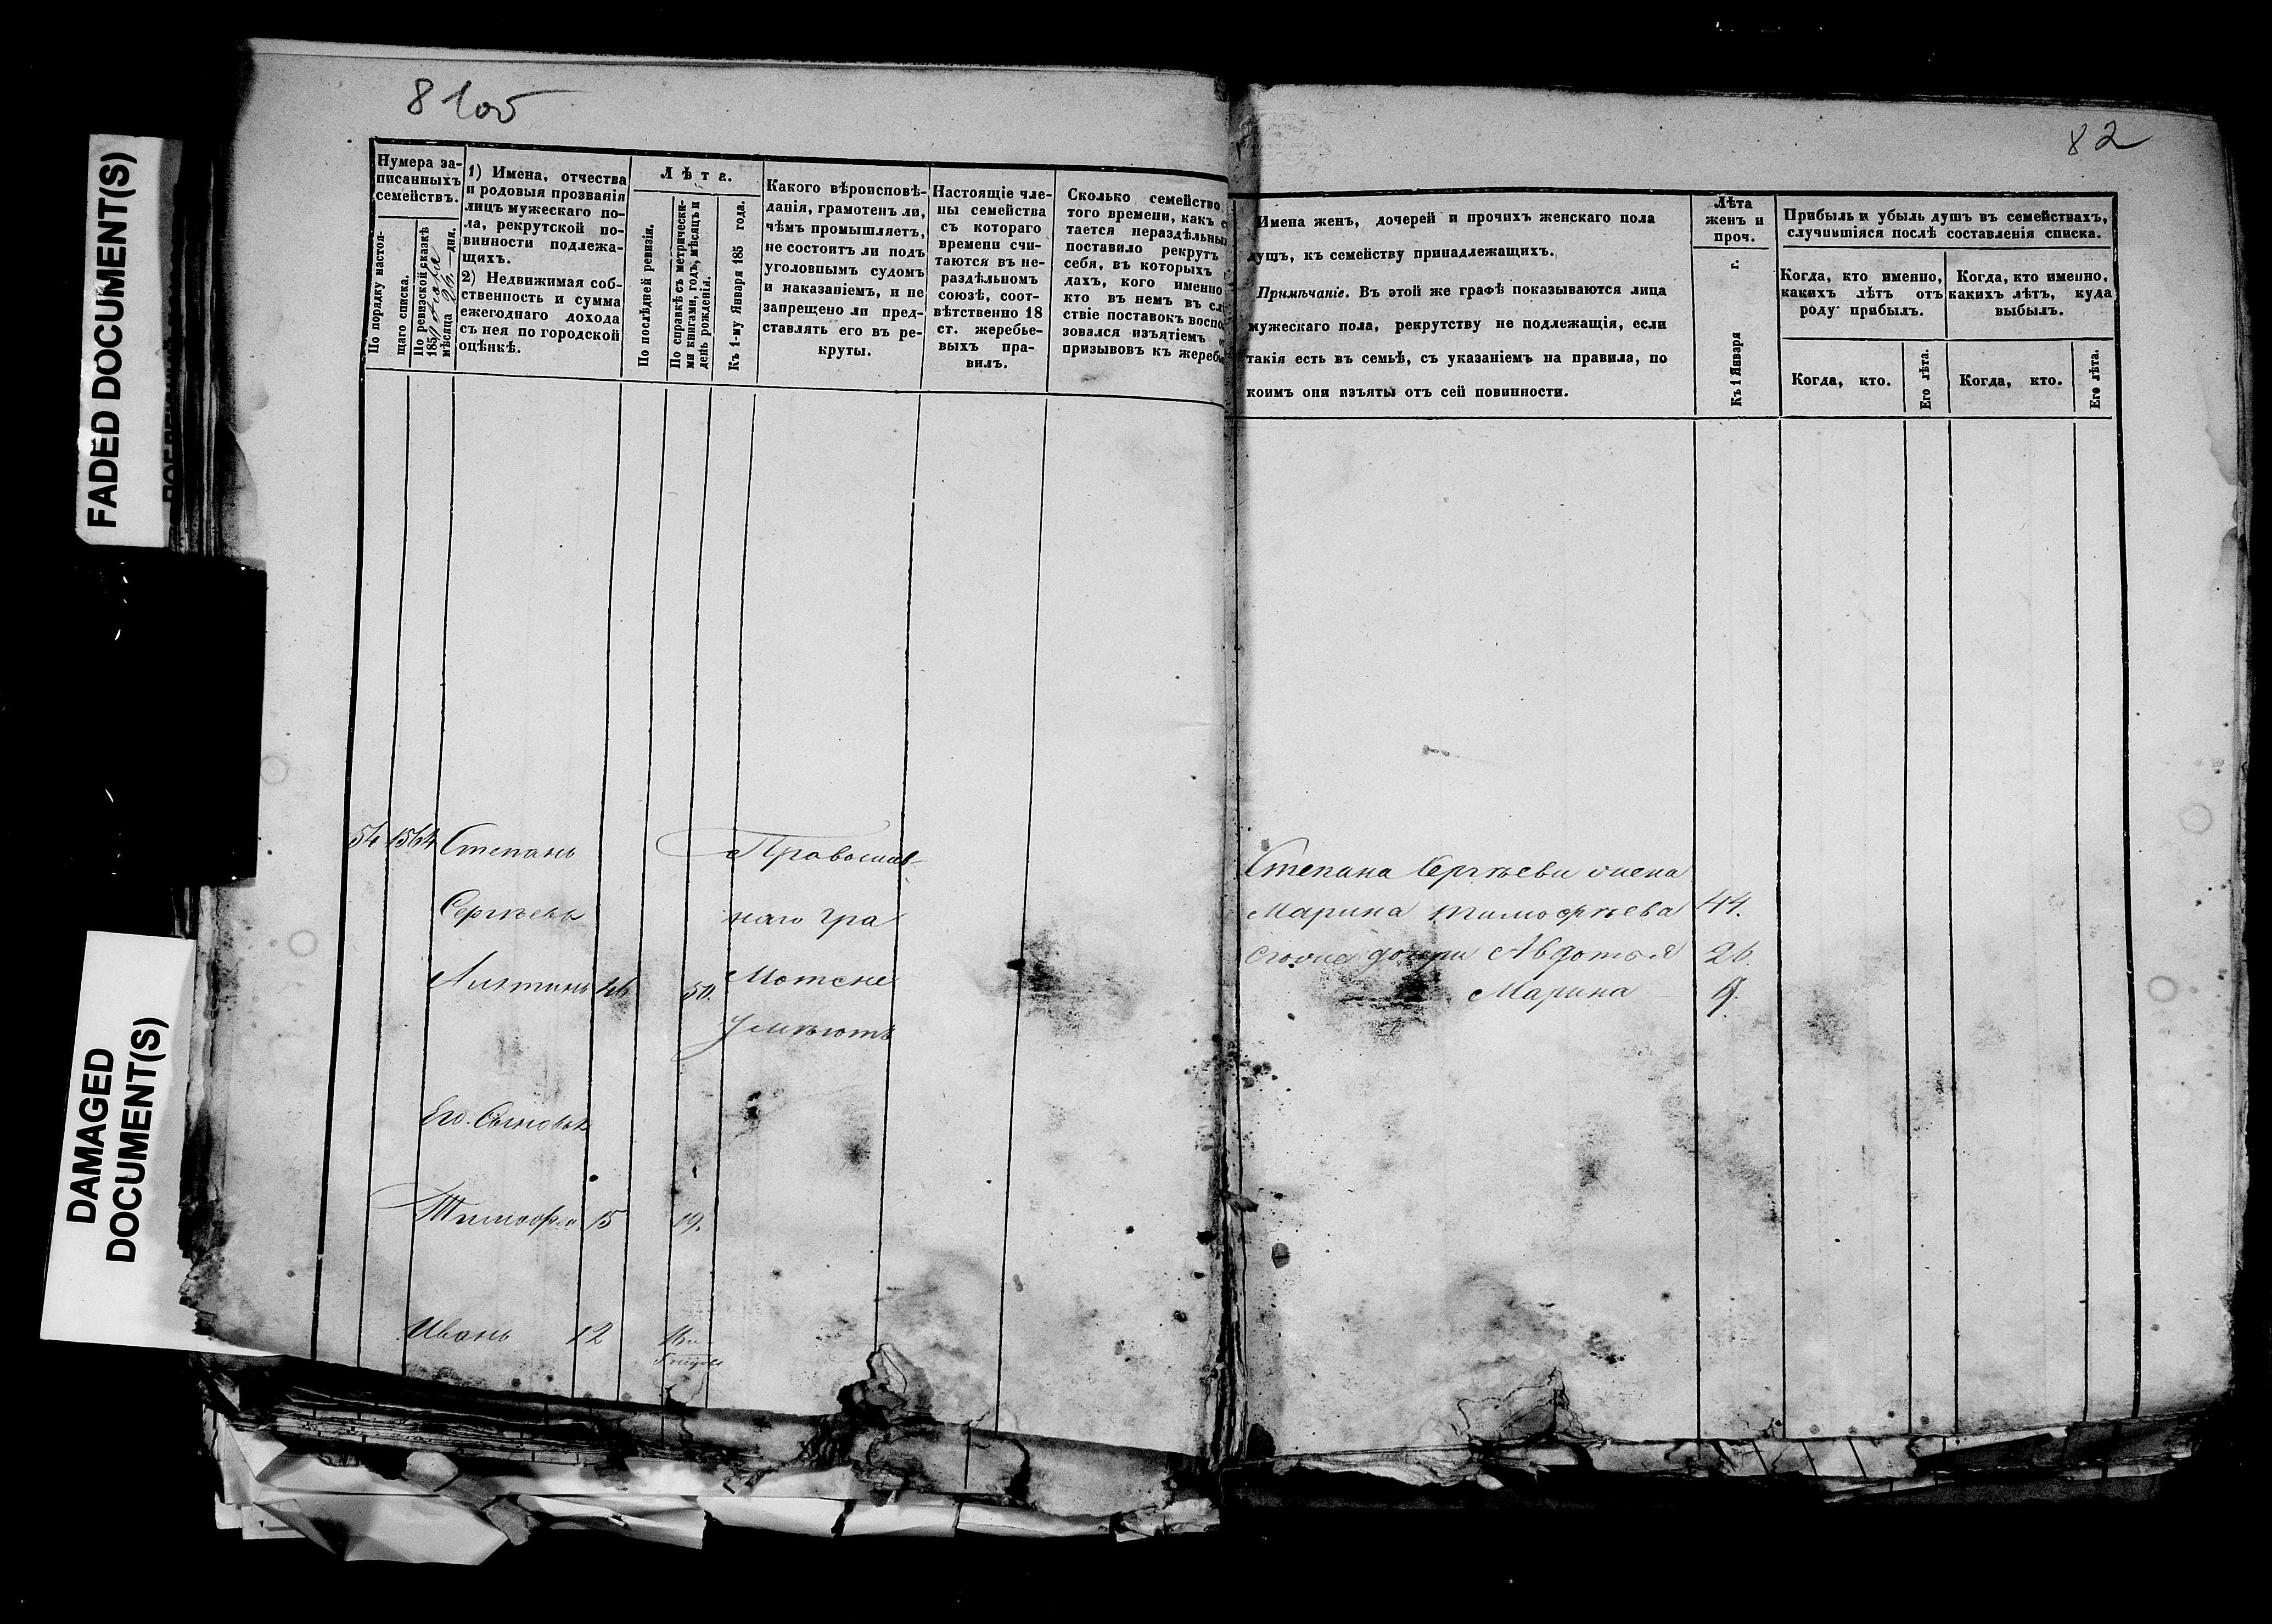 FADED DOCUMENT(S)
DAMAGED
DOCUMENT(S)
8 об
Нумера за-
писанныхъ
семействъ.
По порядку настоя-
щаго списка.
По ревизской сказкѣ
185 мѣсяца дня.
1) Имена, отчества
и родовыя прозванія
лицъ мужескаго по-
ла, рекрутской по-
винности подлежа-
щихъ.
2) Недвижимая соб-
ственность и сумма
ежегоднаго дохода
съ нея по городской
оцѣнкѣ.
Лѣта.
По послѣдней ревизіи.
По справкѣ съ метрически-
ми книгами, годъ, мѣсяцъ и
день рожденія.
Къ 1-му Января 185 года.
Какого вѣроисповѣ-
данія, грамотенъ ли,
чѣмъ промышляетъ,
не состоитъ ли подъ
уголовнымъ судомъ
и наказаніемъ, и не
запрещено ли пред-
ставлять его въ ре-
круты.
Настоящіе чле-
ны семейства
съ котораго
времени счи-
таются въ не-
раздѣльномъ
союзѣ, соот-
вѣтственно 18
ст. жеребье-
выхъ пра-
вилъ.
Сколько семейство
того времени, какъ с
тается нераздѣльны
поставило рекрутъ
себя, въ которыхъ
дахъ, кого именно
кто въ немъ въ сл
ствіе поставокъ воспо
зовался изъятіемъ
призывовъ къ жереб
54 1564 Степанъ
Православ-
Сергѣевъ
наго гра
46 50. мотене
умѣютъ
Его Сыновья
Тимофей 15 19.
Иванъ 12 16
82
Имена женъ, дочерей и прочихъ женскаго пола
душъ, къ семейству принадлежащихъ.
Примѣчаніе. Въ этой же графѣ показываются лица
мужескаго пола, рекрутству не подлежащія, если
такія есть въ семьѣ, съ указаніемъ на правила, по
коимъ они изъяты отъ сей повинности.
Лѣта
женъ и
проч.
Къ 1 Января г.
Прибыль и убыль душъ въ семействахъ,
случившіяся послѣ составленія списка.
Когда, кто именно,
какихъ лѣтъ отъ
роду прибылъ.
Когда, кто именно,
какихъ лѣтъ, куда
выбылъ.
Когда, кто.
Его лѣта.
Когда, кто.
Его лѣта.
Степана Сергѣева жена
Марина Тимофѣева 44.
дочери Авдотья 26
Марина 9.